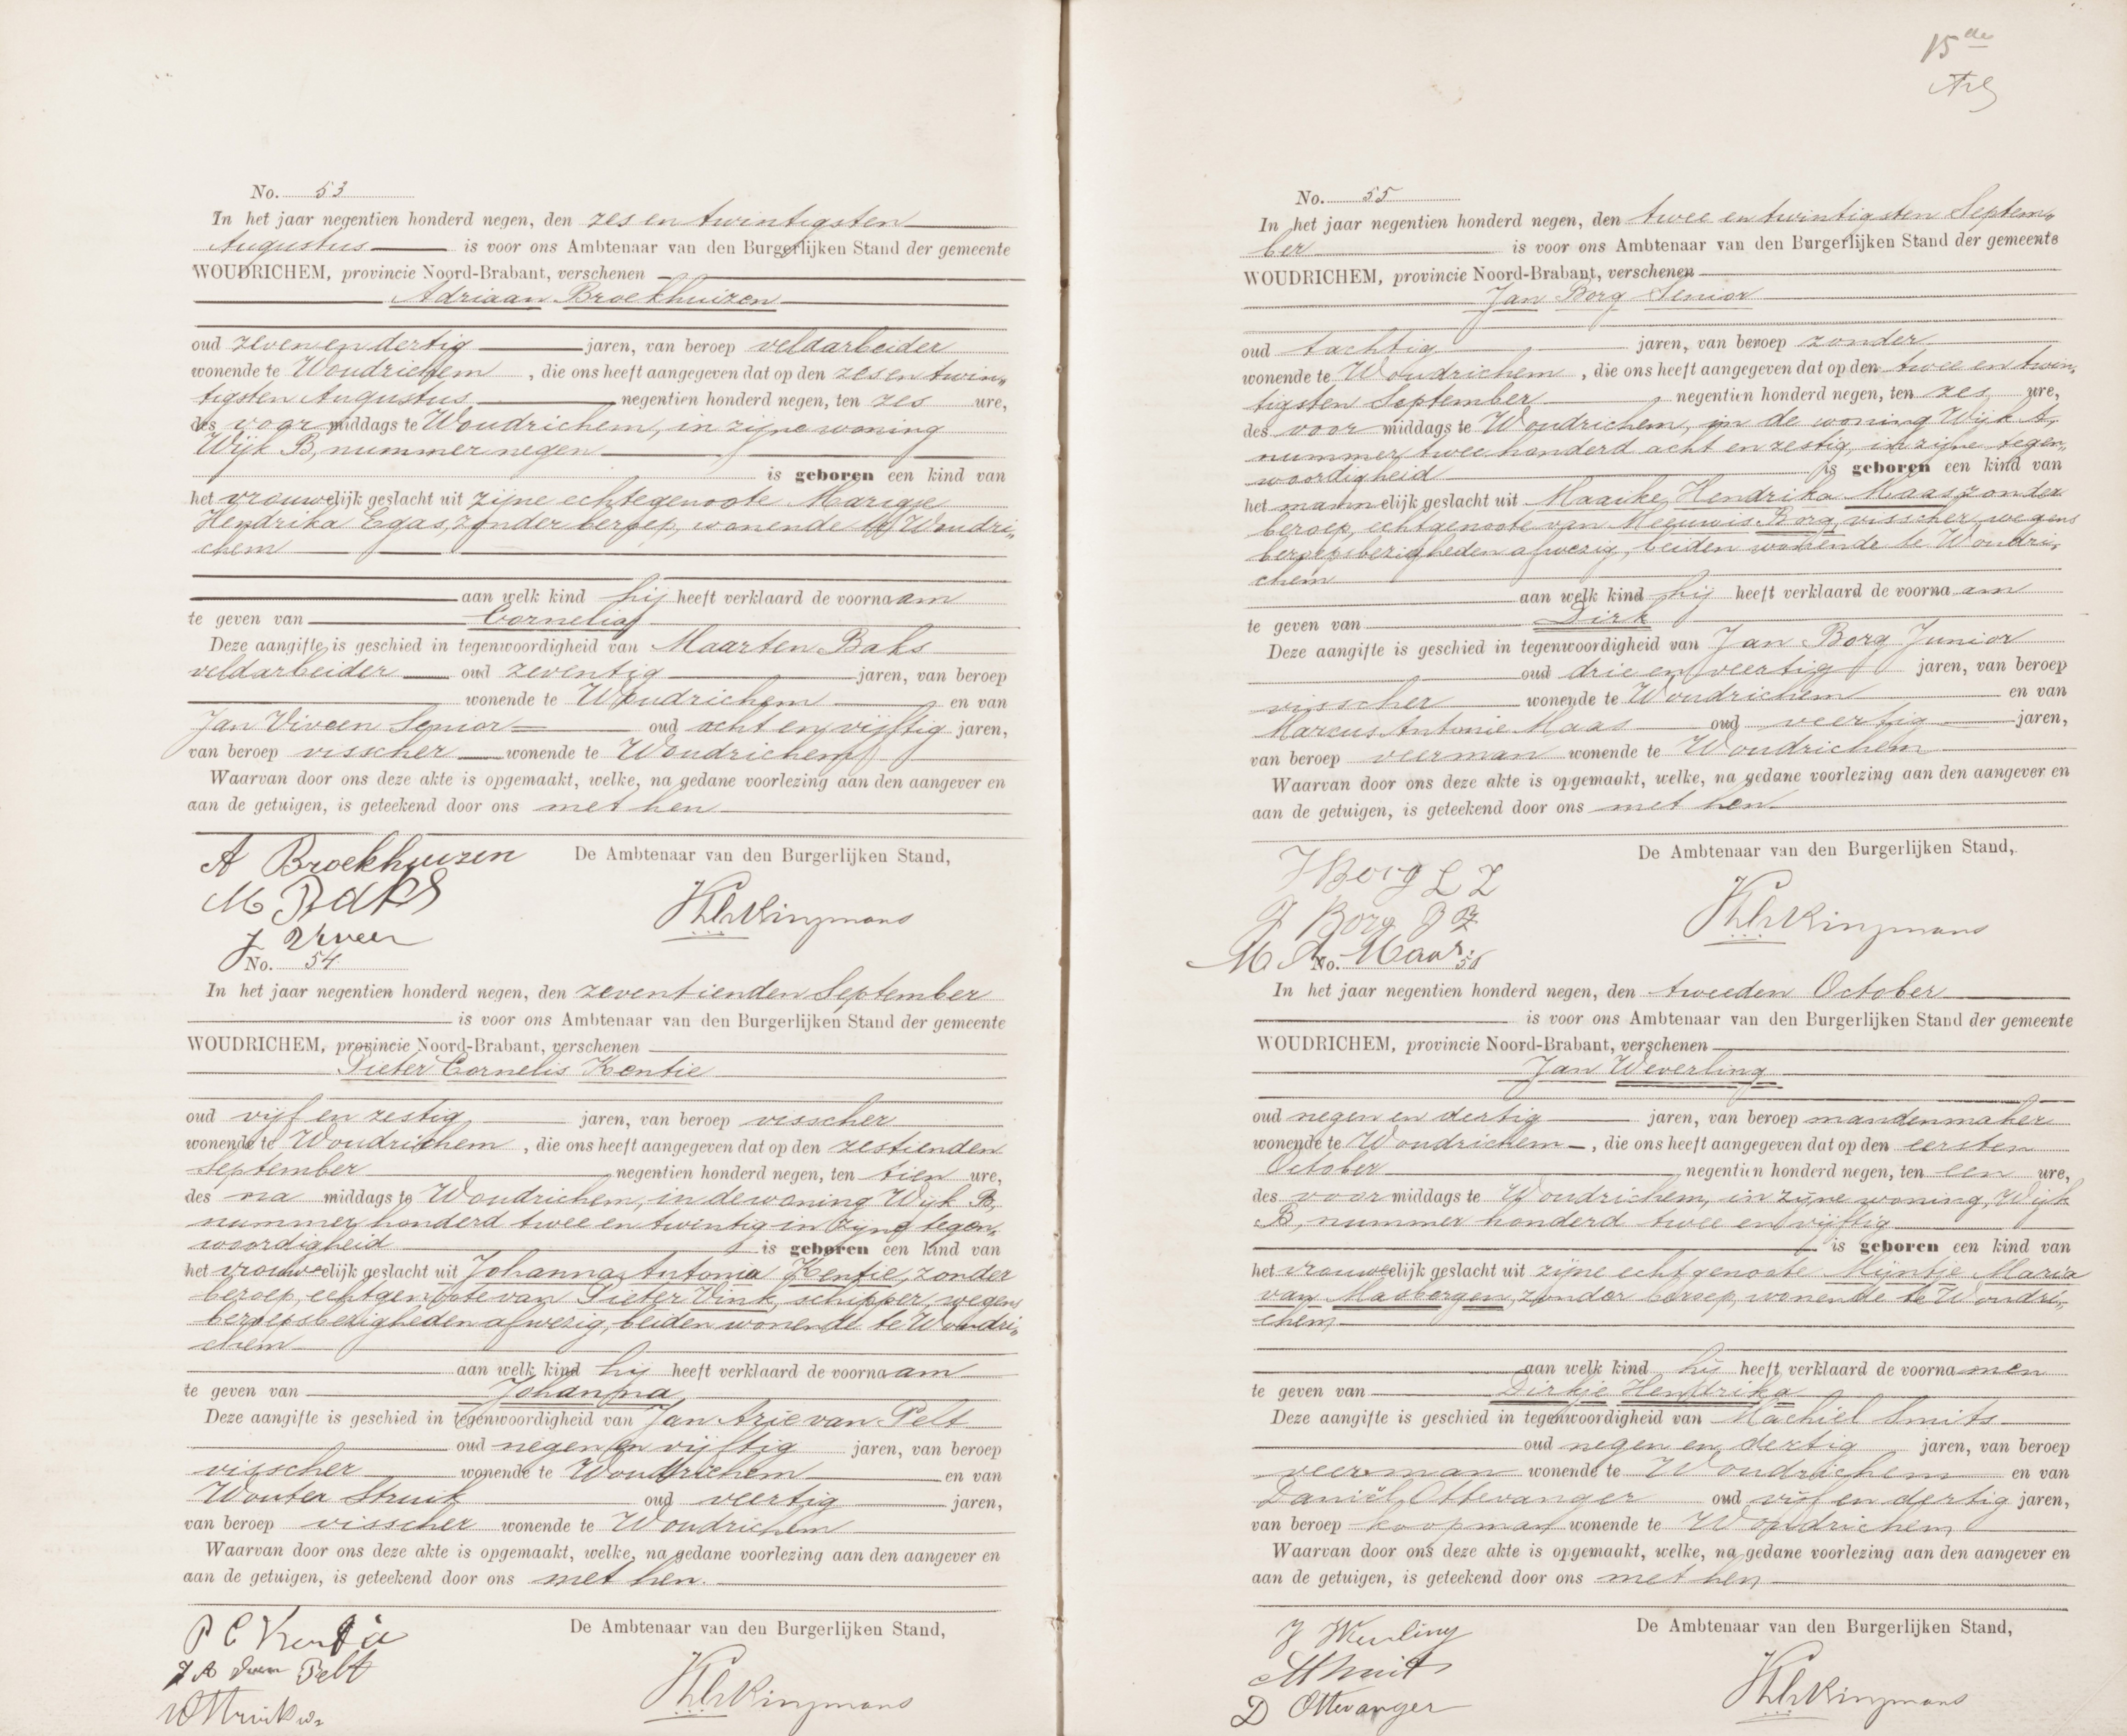 No. 53
In het jaar negentien honderd negen, den zes en twintigsten
Augustus is voor ons Ambtenaar van den Burgerlijken Stand der gemeente
WOUDRICHEM, provincie Noord-Brabant, verschenen
Adriaan Broekhuizen
oud zeven en dertig jaren, van beroep veldarbeider
wonende te Woudrichem, die ons heeft aangegeven dat op den zes en twin„
tigsten Augustus negentien honderd negen, ten zes ure,
des voor middags te Woudrichem, in zijne woning
Wijk B, nummer negen
is geboren een kind van
het vrouwelijk geslacht uit zijne echtegenoote Marigje
Hendrika Egas, zonder beroep, wonende te Woudri„
chem
aan welk kind hij heeft verklaard de voornaam
te geven van Cornelia
Deze aangifte is geschied in tegenwoordigheid van Maarten Baks
veldarbeider oud zeventig jaren, van beroep
wonende te Woudrichem en van
Jan Viveen Senior oud acht en vijftig jaren,
van beroep visscher wonende te Woudrichem
Waarvan door ons deze akte is opgemaakt, welke, na gedane voorlezing aan den aangever en
aan de getuigen, is geteekend door ons met hen
A Broekhuizen De Ambtenaar van den Burgerlijken Stand,
M Baks
J Viveen
No. 54
In het jaar negentien honderd negen, den zeventienden September
is voor ons Ambtenaar van den Burgerlijken Stand der gemeente
WOUDRICHEM, provincie Noord-Brabant, verschenen
Pieter Cornelis Kentie
oud vijf en zestig jaren, van beroep visscher
wonende te Woudrichem, die ons heeft aangegeven dat op den zestienden
September negentien honderd negen, ten tien ure,
des na middags te Woudrichem, in de woning Wijk B,
nummer honderd twee en twintig in zijne tegen„
woordigheid is geboren een kind van
het vrouwelijk geslacht uit Johanna Antonia Kentie, zonder
beroep, echtgenoote van Pieter Vink, schipper, wegens
beroepsbezigheden afwezig, beiden wonende te Woudri„
chem
aan welk kind hij heeft verklaard de voornaam
te geven van Johanna
Deze aangifte is geschied in tegenwoordigheid van Jan Arie van Pelt
oud negen en vijftig jaren, van beroep
visscher wonende te Woudrichem en van
Wouter Struik oud veertig jaren,
van beroep visscher wonende te Woudrichem
Waarvan door ons deze akte is opgemaakt, welke, na gedane voorlezing aan den aangever en
aan de getuigen, is geteekend door ons met hen.
P C Kentie De Ambtenaar van den Burgerlijken Stand,
J A van Pelt
W Struik
15de
No. 55
In het jaar negentien honderd negen, den twee en twintigsten Septem„
ber is voor ons Ambtenaar van den Burgerlijken Stand der gemeente
WOUDRICHEM, provincie Noord-Brabant, verschenen
Jan Borg Senior
oud tachtig jaren, van beroep zonder
wonende te Woudrichem, die ons heeft aangegeven dat op den twee en twin„
tigsten September negentien honderd negen, ten zes ure,
des voor middags te Woudrichem, in de woning Wijk A,
nummer twee honderd acht en zestig, in zijne tegen„
woordigheid is geboren een kind van
het mannelijk geslacht uit Maaike Hendrika Maas zonder
beroep, echtgenoote van Meeuwis Borg, visscher, wegens
beroepsbezigheden afwezig, beiden wonende te Woudri„
chem
aan welk kind hij heeft verklaard de voornaam
te geven van Dirk
Deze aangifte is geschied in tegenwoordigheid van Jan Borg Junior
oud drie en veertig jaren, van beroep
visscher wonende te Woudrichem en van
Marcus Antonie Maas oud veertig jaren,
van beroep veerman wonende te Woudrichem
Waarvan door ons deze akte is opgemaakt, welke, na gedane voorlezing aan den aangever en
aan de getuigen, is geteekend door ons met hen
J Borg L Z De Ambtenaar van den Burgerlijken Stand,
J Borg J Z
M A Maas
No. 56
In het jaar negentien honderd negen, den tweeden October
is voor ons Ambtenaar van den Burgerlijken Stand der gemeente
WOUDRICHEM, provincie Noord-Brabant, verschenen
Jan Weverling
oud negen en dertig jaren, van beroep mandenmaker
wonende te Woudrichem, die ons heeft aangegeven dat op den eersten
October negentien honderd negen, ten een ure,
des voor middags te Woudrichem, in zijne woning, Wijk
B, nummer honderd twee en vijftig
is geboren een kind van
het vrouwelijk geslacht uit zijne echtgenoote Mijntje Maria
van Maaborgen, zonder beroep, wonende te Woudri„
chem
aan welk kind hij heeft verklaard de voornamen
te geven van Dirkje Hendrika
Deze aangifte is geschied in tegenwoordigheid van Machiel Smits
oud negen en dertig jaren, van beroep
veerman wonende te Woudrichem en van
Daniël Ottevanger oud vijf en dertig jaren,
van beroep koopman wonende te Woudrichem
Waarvan door ons deze akte is opgemaakt, welke, na gedane voorlezing aan den aangever en
aan de getuigen, is geteekend door ons met hen
J Weverling De Ambtenaar van den Burgerlijken Stand,
M Smits
D Ottevanger